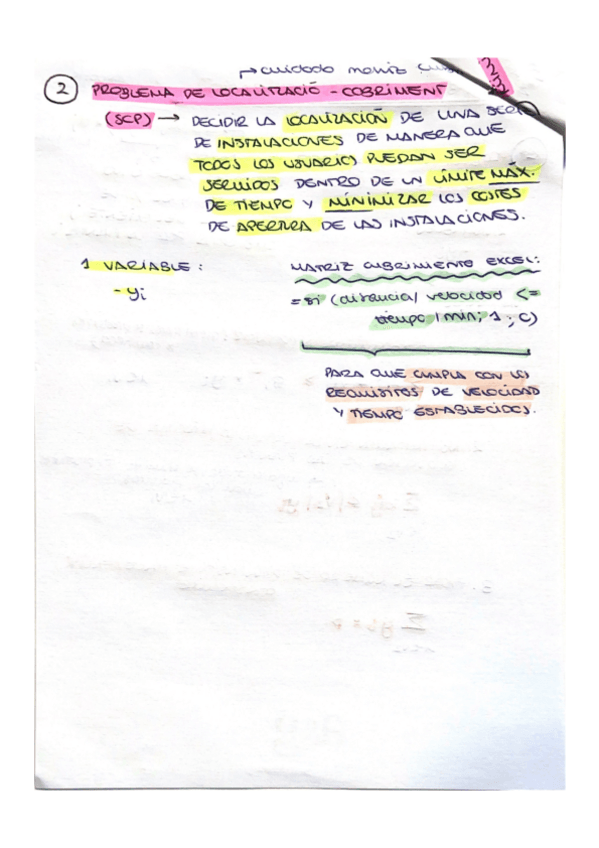 → cuidado matriz
2 PROBLEMA DE LOCALITZACIÓ - COBRIMENT
(SCP) → DECIDIR LA LOCALIZACIÓN DE UNA SERIE
DE INSTALACIONES DE MANERA QUE
TODOS LOS USUARIOS PUEDAN SER
SERVIDOS DENTRO DE UN LÍMITE MÁX.
DE TIEMPO Y MINIMIZAR LOS COSTES
DE APERTURA DE LAS INSTALACIONES.
1 VARIABLE:
- yi
MATRIZ CUBRIMIENTO EXCEL:
=si (distancia/ velocidad <=
tiempo/min; 1; 0)
PARA QUE CUMPLA CON LOS
REQUISITOS DE VELOCIDAD
Y TIEMPO ESTABLECIDOS.